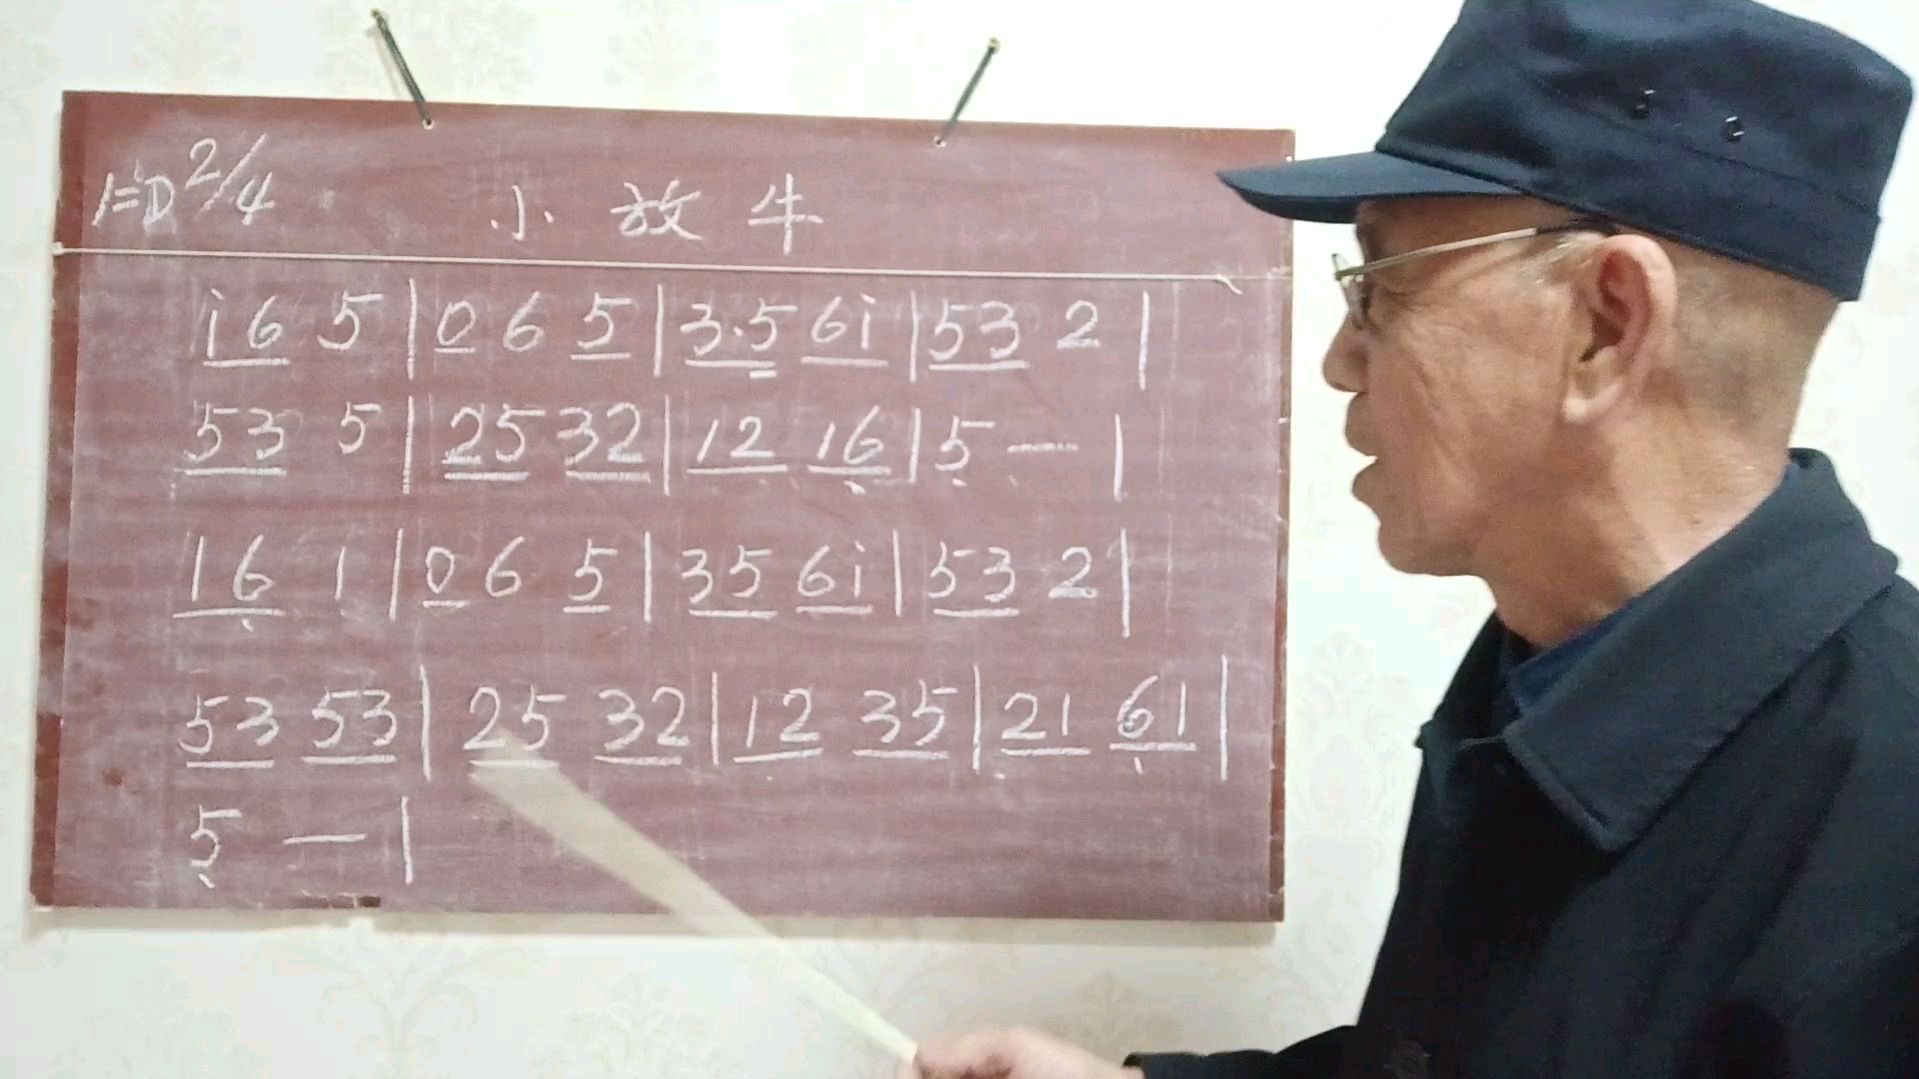 1=D 2/4 小放牛
i̇ 6 5 | 0 6 5 | 3.5 6i̇ | 53 2 |
53 5 | 25 32 | 12 16̣ | 5̣ — |
16̣ 1 | 0 6 5 | 35 6i̇ | 53 2 |
53 53 | 25 32 | 12 35 | 21 6̣1 |
5̣ — |